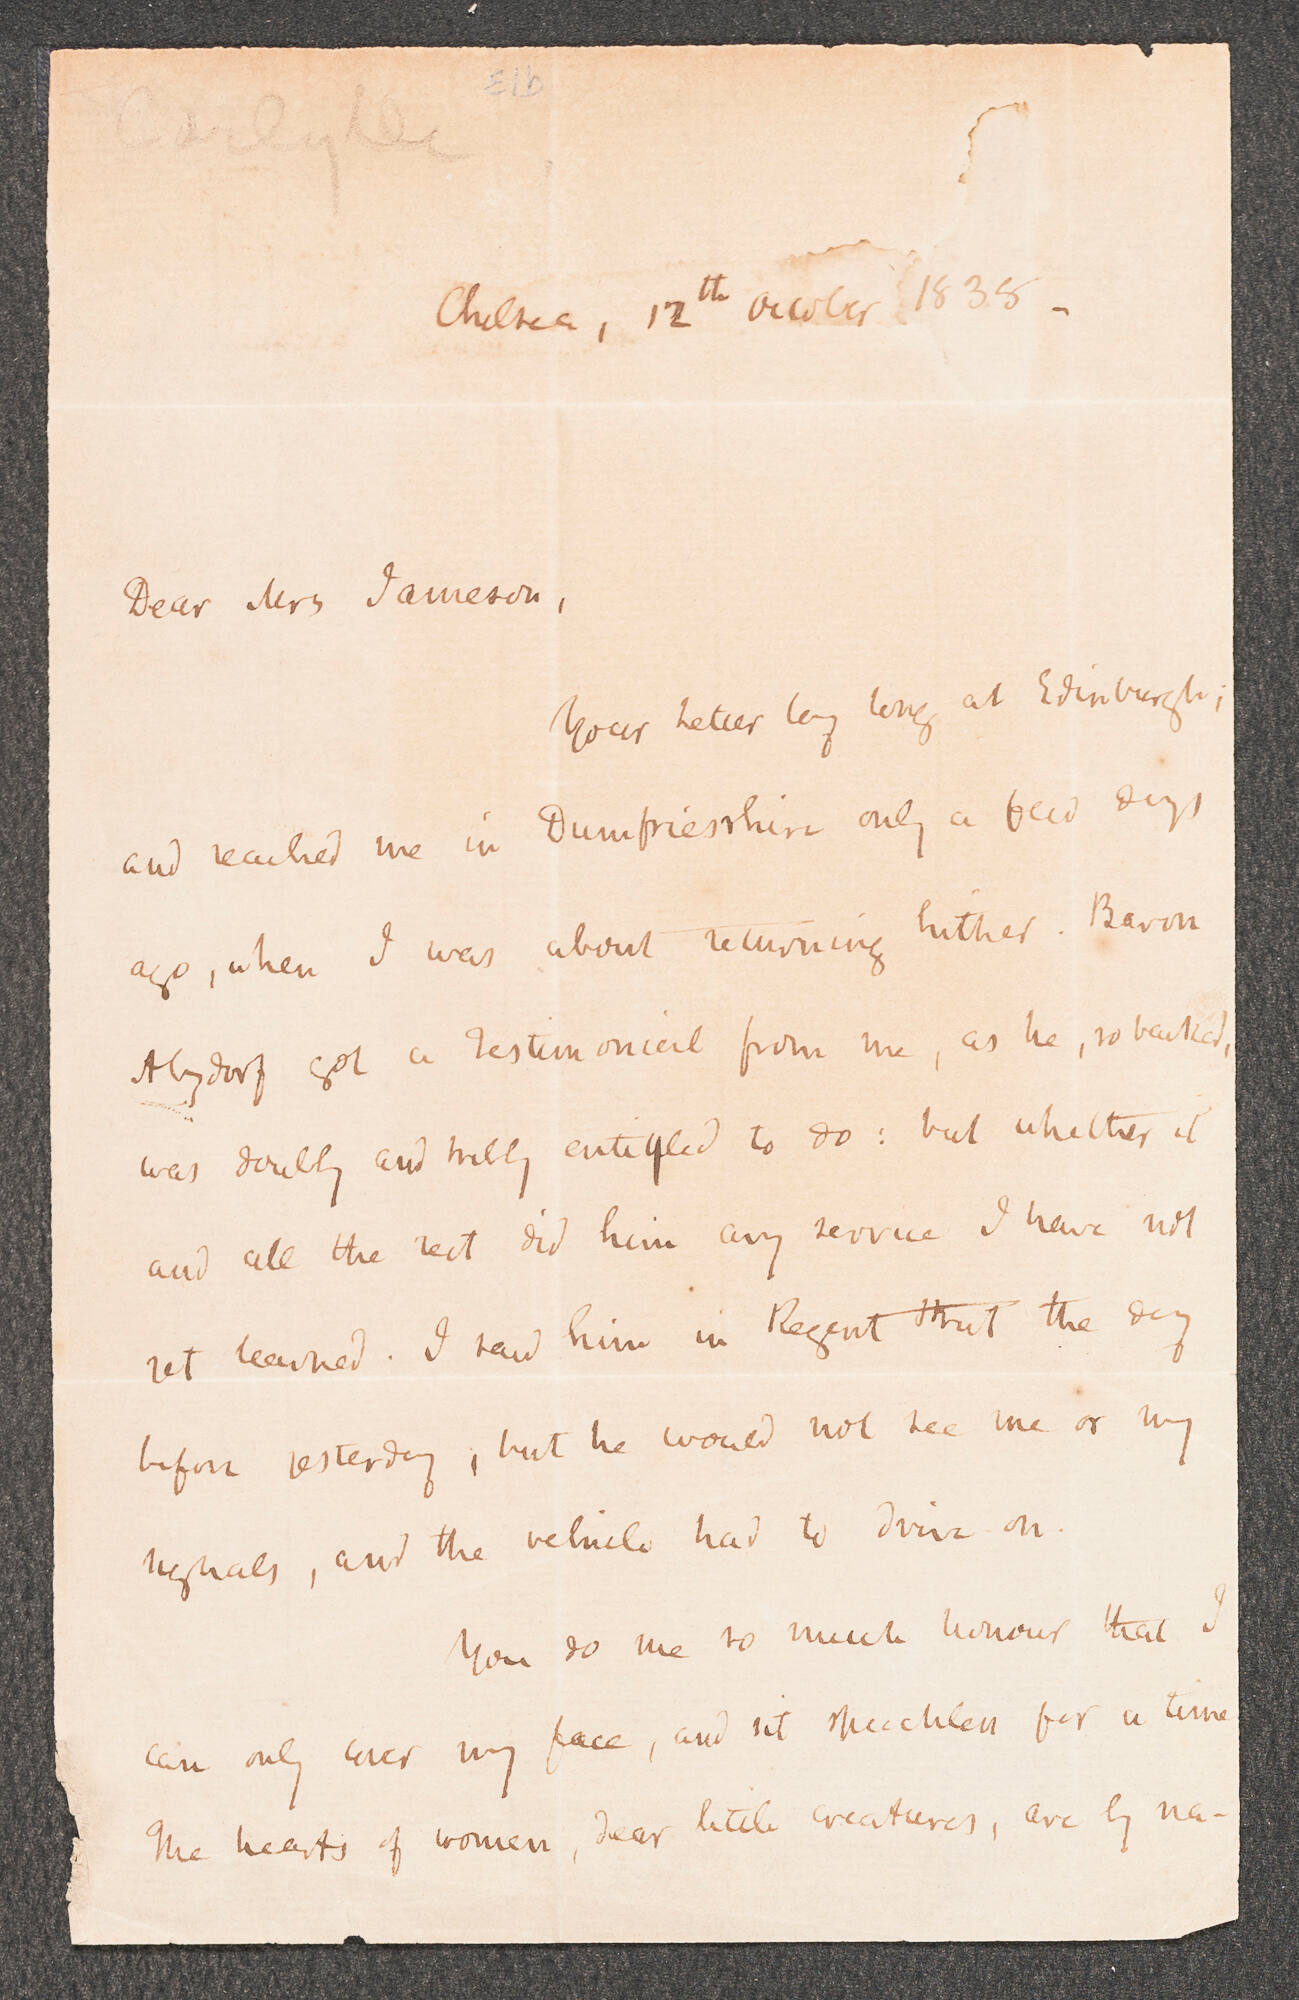 Carlyle
E1b
Chelsea, 12th October 1838 -
Dear Mrs Jameson,
Your Letter lay long at Edinburgh;
and reached me in Dumfriesshire only a few days
ago, when I was about returning hither. Baron
got a Testimonial from me, as he, so backed,
was doubly and trebly entitled to do: but whether it
and all the rest did him any service I have not
yet learned. I saw him in Regent Street the day
before yesterday, but he would not see me or my
signals, and the vehicle had to drive on.
You do me so much honour that I
can only cover my face, and sit speechless for a time
The hearts of women, dear little creatures, are by na-